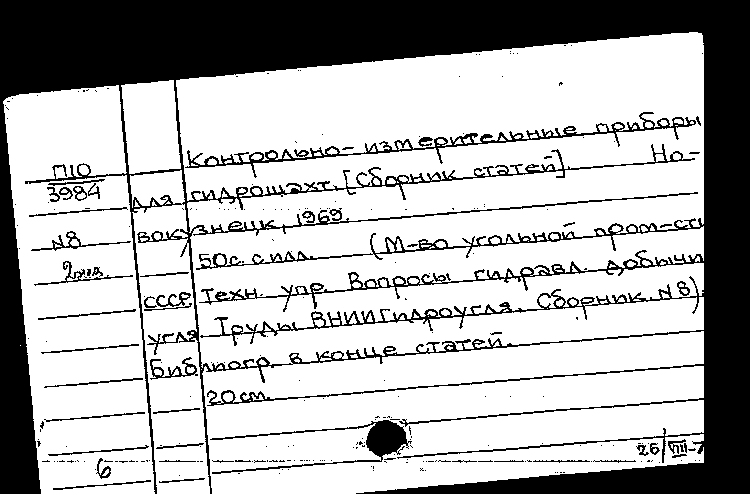 П10
3984
N8
2 экз.
Контрольно-измерительные приборы
для гидрошахт. [Сборник статей]. Но-
вокузнецк, 1969.
50с. с илл. (М-во угольной пром-сти
СССР. Техн. упр. Вопросы гидравл. добычи
угля. Труды ВНИИГидроугля. Сборник N8).
Библиогр. в конце статей.
20 см.
6
26/VIII-7